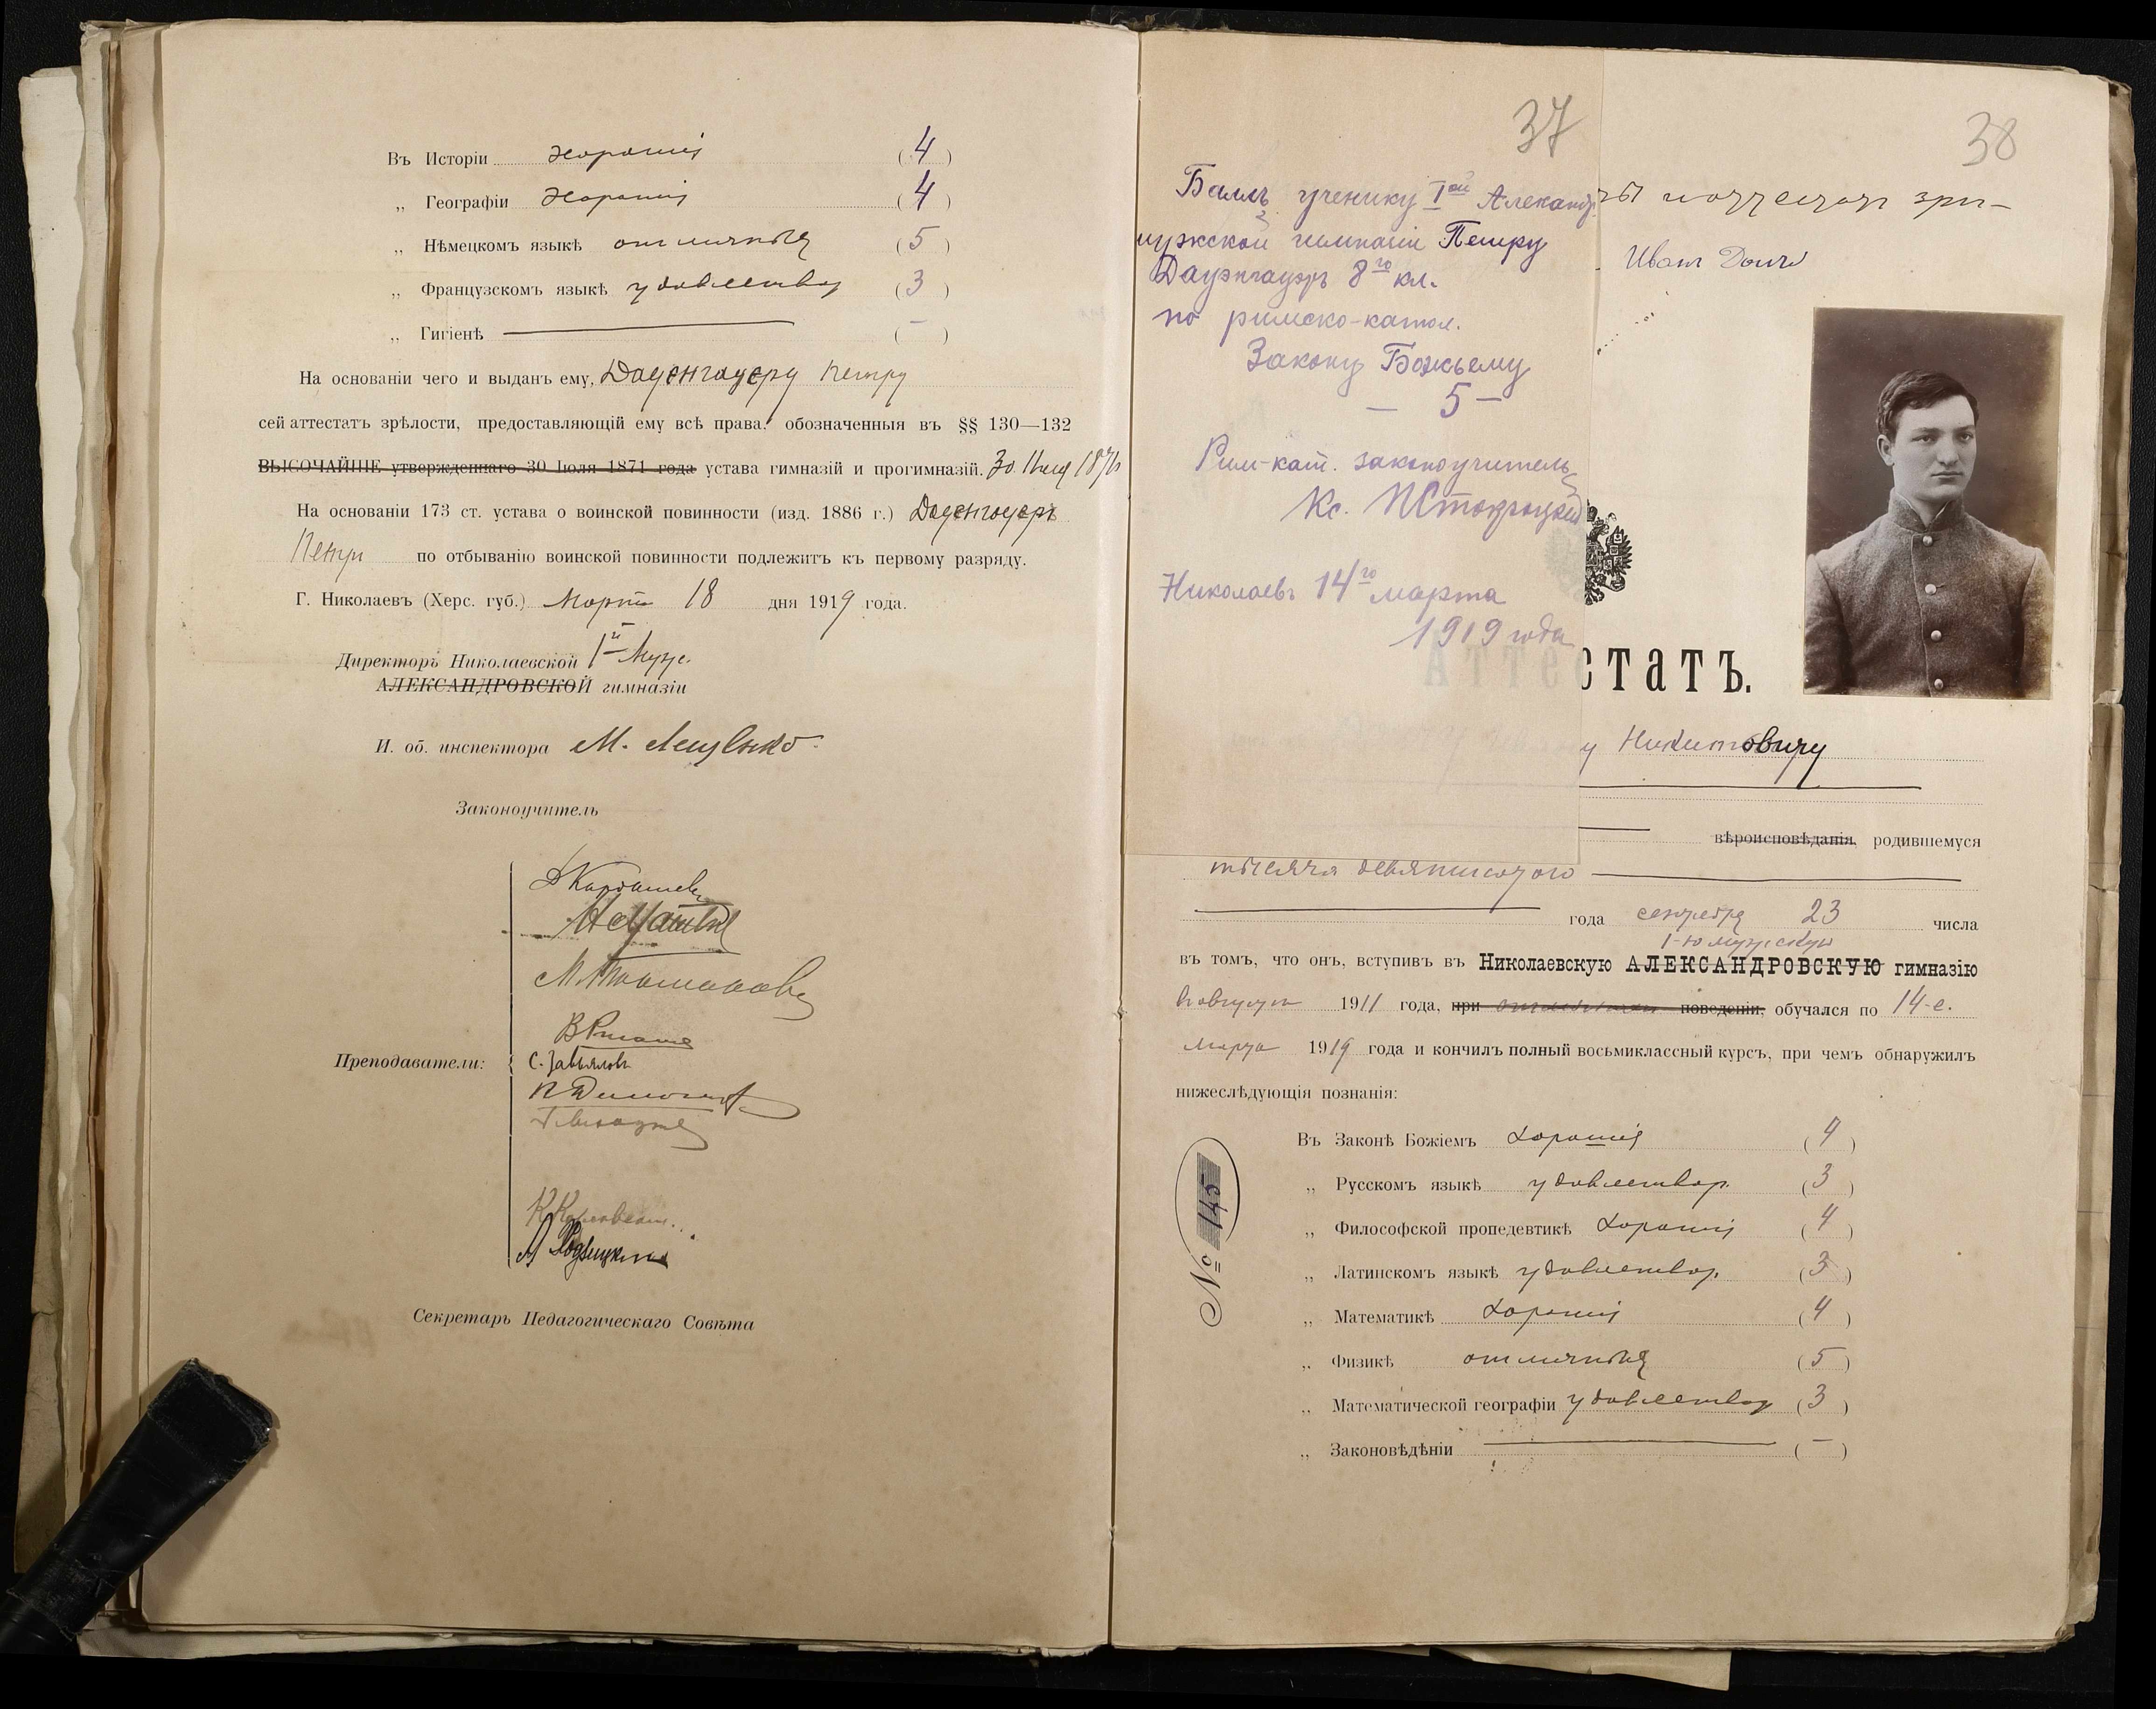 Въ Исторіи хорошія (4)
„ Географіи хорошія (4)
„ Нѣмецкомъ языкѣ отличныя (5)
„ Французскомъ языкѣ удовлетвор (3)
„ Гигіенѣ — (–)
На основаніи чего и выданъ ему, Дауенгауеру Петру
сей аттестатъ зрѣлости, предоставляющій ему всѣ права, обозначенныя въ §§ 130—132
ВЫСОЧАЙШЕ утвержденнаго 30 Іюля 1871 года устава гимназій и прогимназій. 30 Іюля 1871
На основаніи 173 ст. устава о воинской повинности (изд. 1886 г.) Дауенгауеръ
Петръ по отбыванію воинской повинности подлежитъ къ первому разряду.
Г. Николаевъ (Херс. губ.) Мартъ 18 дня 1919 года.
Директоръ Николаевской 1й Муж.
АЛЕКСАНДРОВСКОЙ гимназіи
И. об. инспектора М. Лещенко
Законоучитель
Преподаватели:
С. Завьяловъ
Секретарь Педагогическаго Совѣта
37
Баллъ ученику Iой Александр.
мужской гимназіи Петру
Дауэнгауэръ 8го кл.
по римско-катол.
Закону Божьему
— 5 —
Рим-кат. законоучитель
Кс.
Николаевъ 14го марта
1919 года
38
Иванъ
СТАТЪ.
у Никитовичу
вѣроисповѣданія, родившемуся
тысяча девятисотого
года сентября 23 числа
1-ю мужскую
въ томъ, что онъ, вступивъ въ Николаевскую АЛЕКСАНДРОВСКУЮ гимназію
въ августѣ 1911 года, при отличномъ поведеніи, обучался по 14-е.
марта 1919 года и кончилъ полный восьмиклассный курсъ, при чемъ обнаружилъ
нижеслѣдующія познанія:
№ 145
Въ Законѣ Божіемъ хорошія (4)
„ Русскомъ языкѣ удовлетвор. (3)
„ Философской пропедевтикѣ хорошія (4)
„ Латинскомъ языкѣ удовлетвор. (3)
„ Математикѣ хорошія (4)
„ Физикѣ отличныя (5)
„ Математической географіи удовлетвор (3)
„ Законовѣдѣніи — (–)